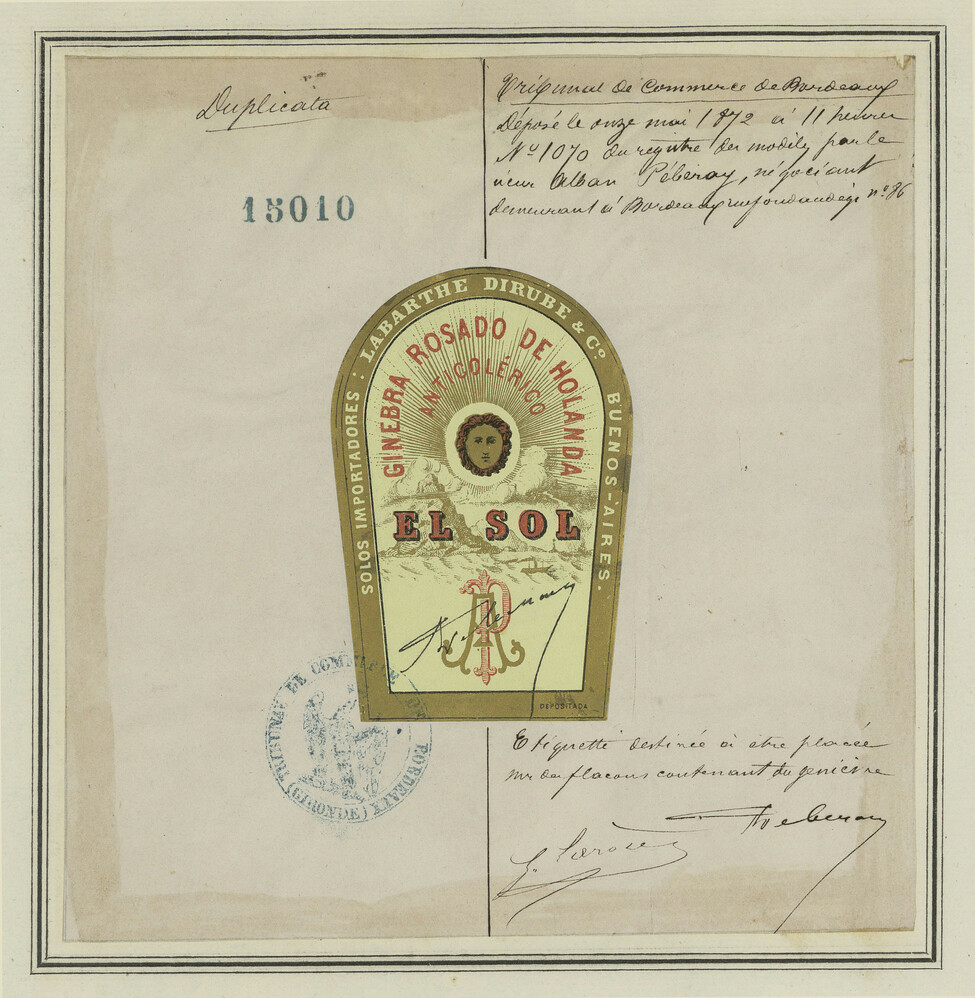 Duplicata
15010
Tribunal de Commerce de Bordeaux
Déposé le onze mai 1872 à 11 heures
No 1070 du registre des modèles par le
sieur Alban Pébéray, négociant
demeurant à Bordeaux rue fondaudège no 86
SOLOS IMPORTADORES : LABARTHE DIRUBE & Co. BUENOS-AIRES.
GINEBRA ROSADO DE HOLANDA
ANTICOLÉRICO
EL SOL
AP
DEPOSITADA
TRIBUNAL DE COMMERCE DE BORDEAUX
(GIRONDE)
Etiquette destinée à être placée
sur des flacons contenant du genièvre